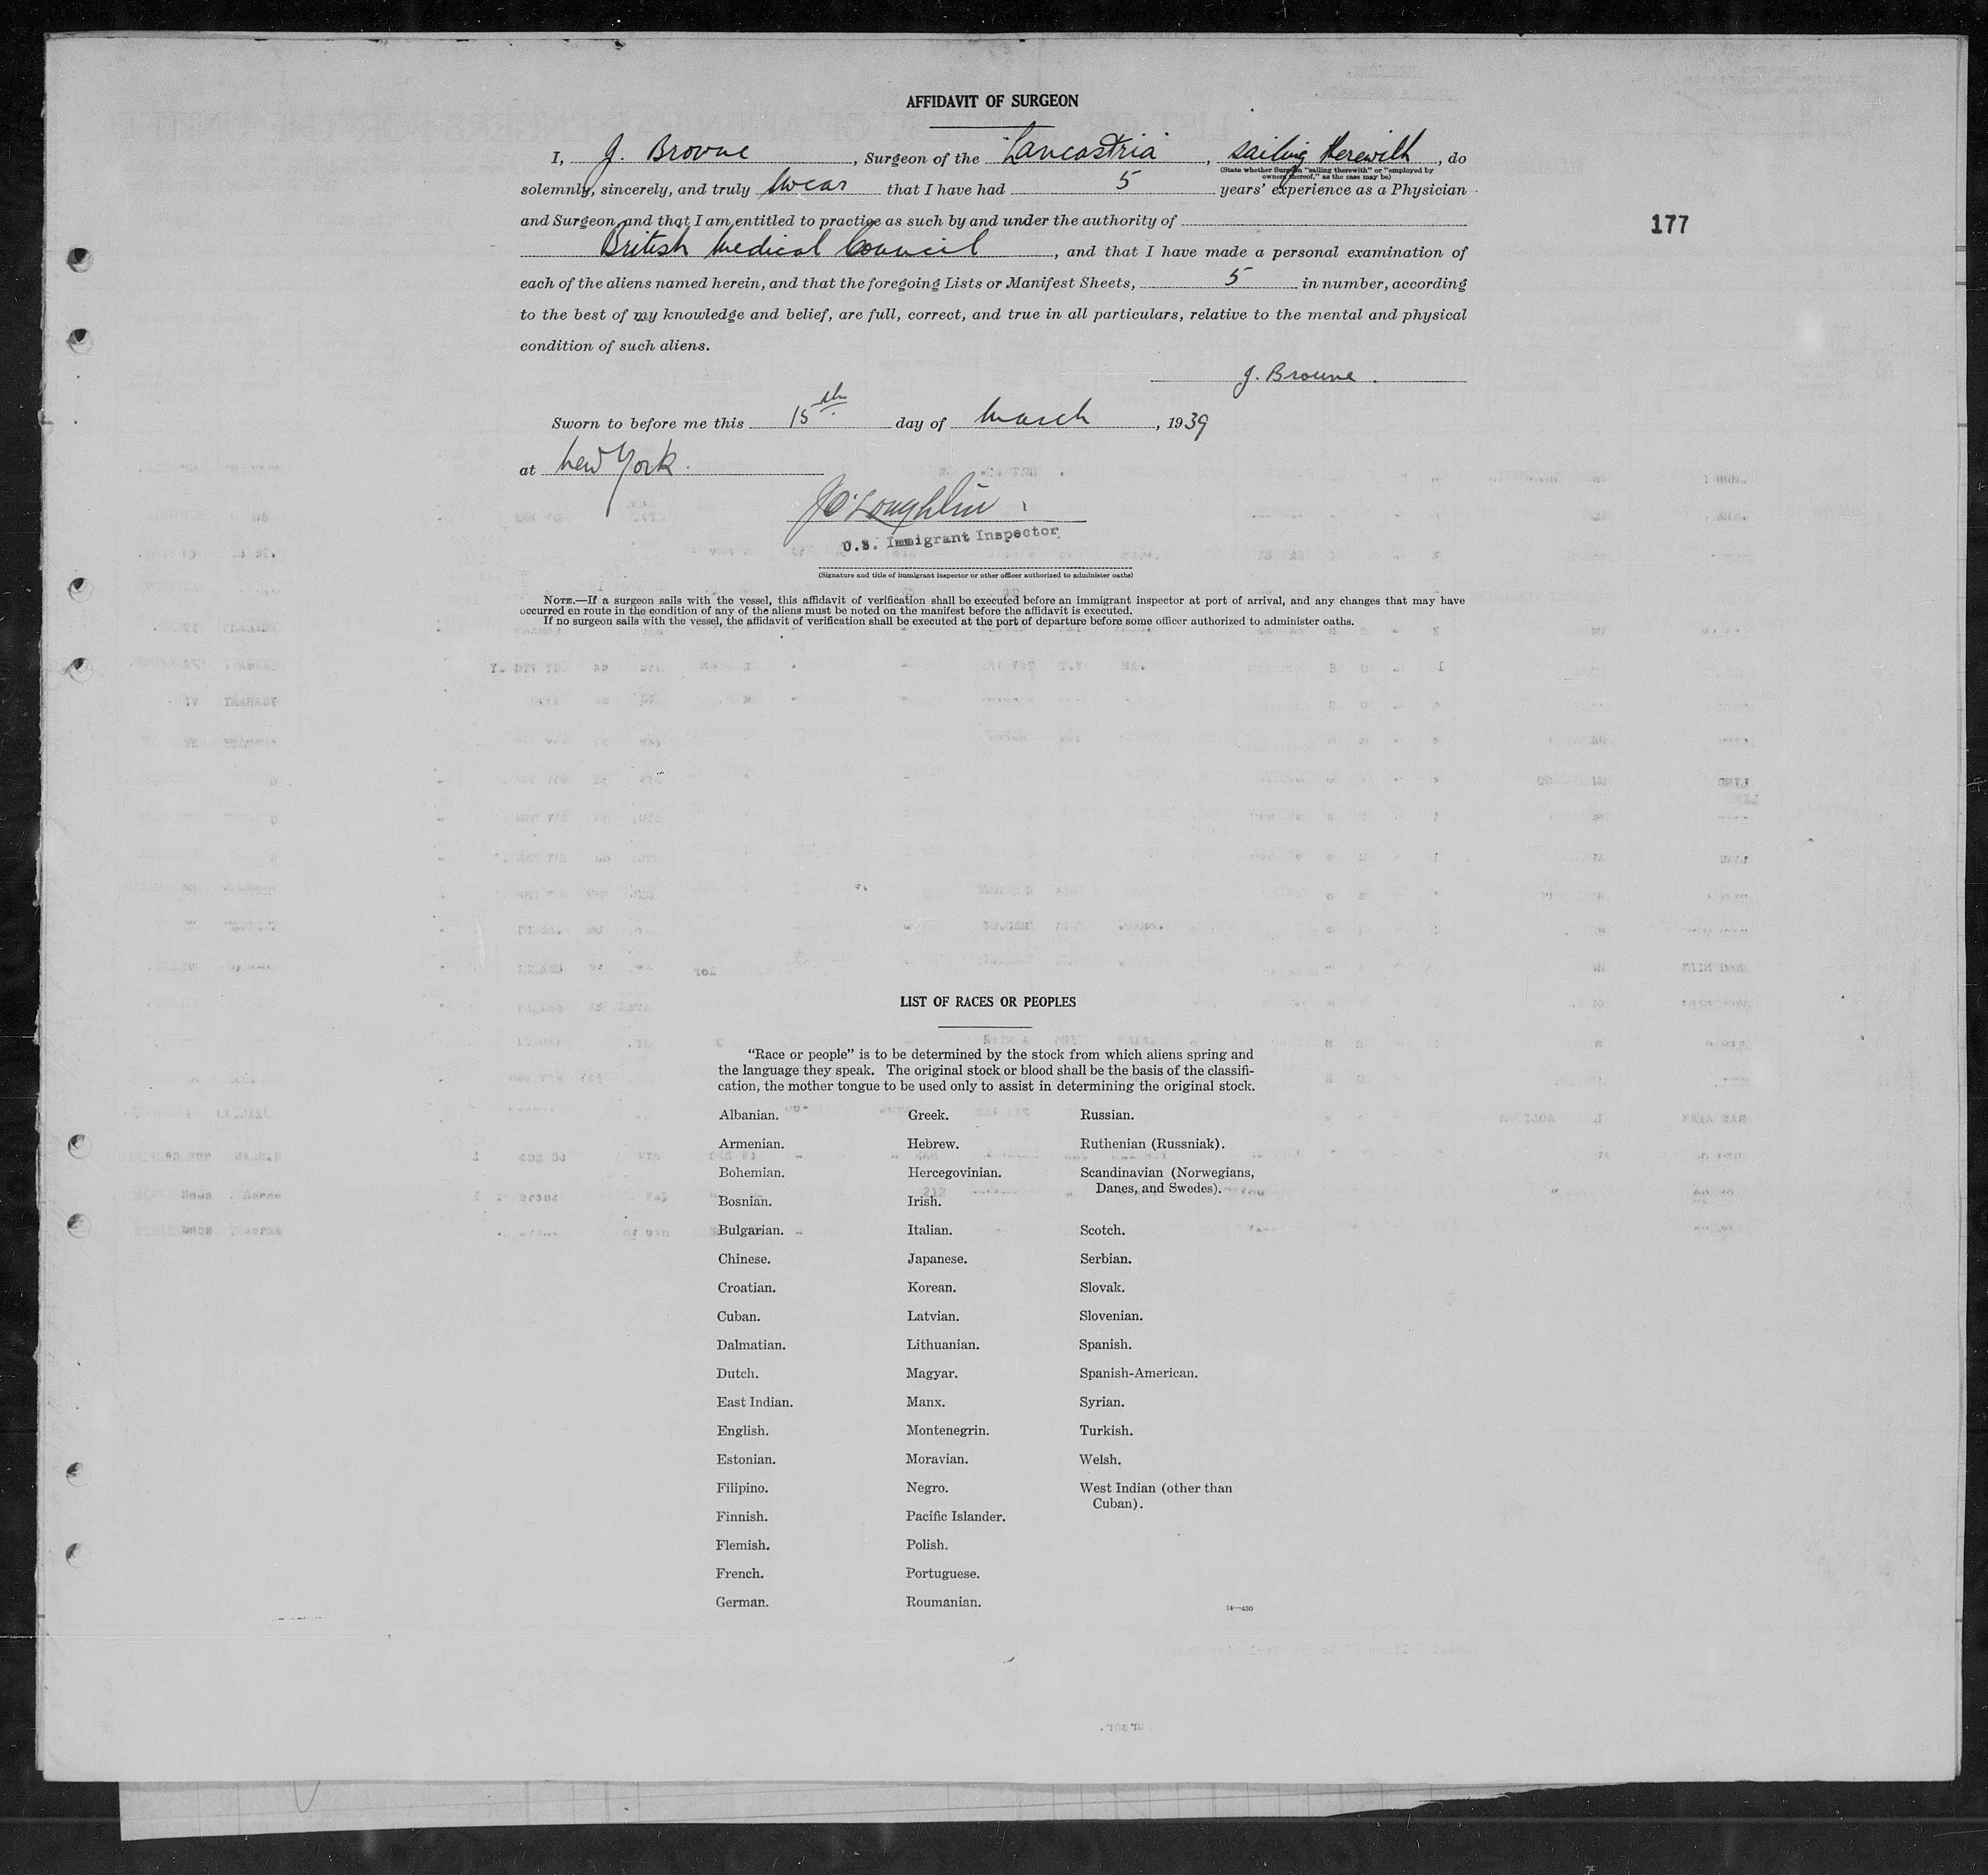 AFFIDAVIT OF SURGEON
I, J. Browne, Surgeon of the Lancastria, sailing therewith, do
(State whether Surgeon "sailing therewith" or "employed by
owners thereof," as the case may be)
solemnly, sincerely, and truly swear that I have had 5 years' experience as a Physician
and Surgeon and that I am entitled to practice as such by and under the authority of
177
British Medical Council, and that I have made a personal examination of
each of the aliens named herein, and that the foregoing Lists or Manifest Sheets, 5 in number, according
to the best of my knowledge and belief, are full, correct, and true in all particulars, relative to the mental and physical
condition of such aliens.
J. Browne.
Sworn to before me this 15th day of March, 1939
at New York.
J O'Loughlin
U.S. Immigrant Inspector
(Signature and title of immigrant inspector or other officer authorized to administer oaths)
NOTE.—If a surgeon sails with the vessel, this affidavit of verification shall be executed before an immigrant inspector at port of arrival, and any changes that may have
occurred en route in the condition of any of the aliens must be noted on the manifest before the affidavit is executed.
If no surgeon sails with the vessel, the affidavit of verification shall be executed at the port of departure before some officer authorized to administer oaths.
LIST OF RACES OR PEOPLES
"Race or people" is to be determined by the stock from which aliens spring and
the language they speak. The original stock or blood shall be the basis of the classifi-
cation, the mother tongue to be used only to assist in determining the original stock.
Albanian.
Armenian.
Bohemian.
Bosnian.
Bulgarian.
Chinese.
Croatian.
Cuban.
Dalmatian.
Dutch.
East Indian.
English.
Estonian.
Filipino.
Finnish.
Flemish.
French.
German.
Greek.
Hebrew.
Hercegovinian.
Irish.
Italian.
Japanese.
Korean.
Latvian.
Lithuanian.
Magyar.
Manx.
Montenegrin.
Moravian.
Negro.
Pacific Islander.
Polish.
Portuguese.
Roumanian.
Russian.
Ruthenian (Russniak).
Scandinavian (Norwegians,
Danes, and Swedes).
Scotch.
Serbian.
Slovak.
Slovenian.
Spanish.
Spanish-American.
Syrian.
Turkish.
Welsh.
West Indian (other than
Cuban).
14—430